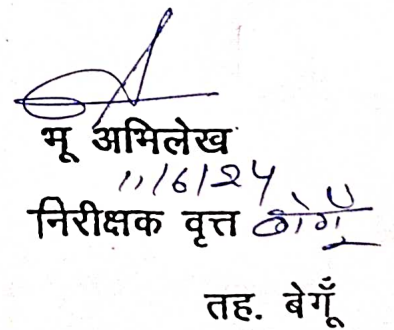 भू अभिलेख
11/6/24
निरीक्षक वृत्त बेगूँ
तह. बेगूँ